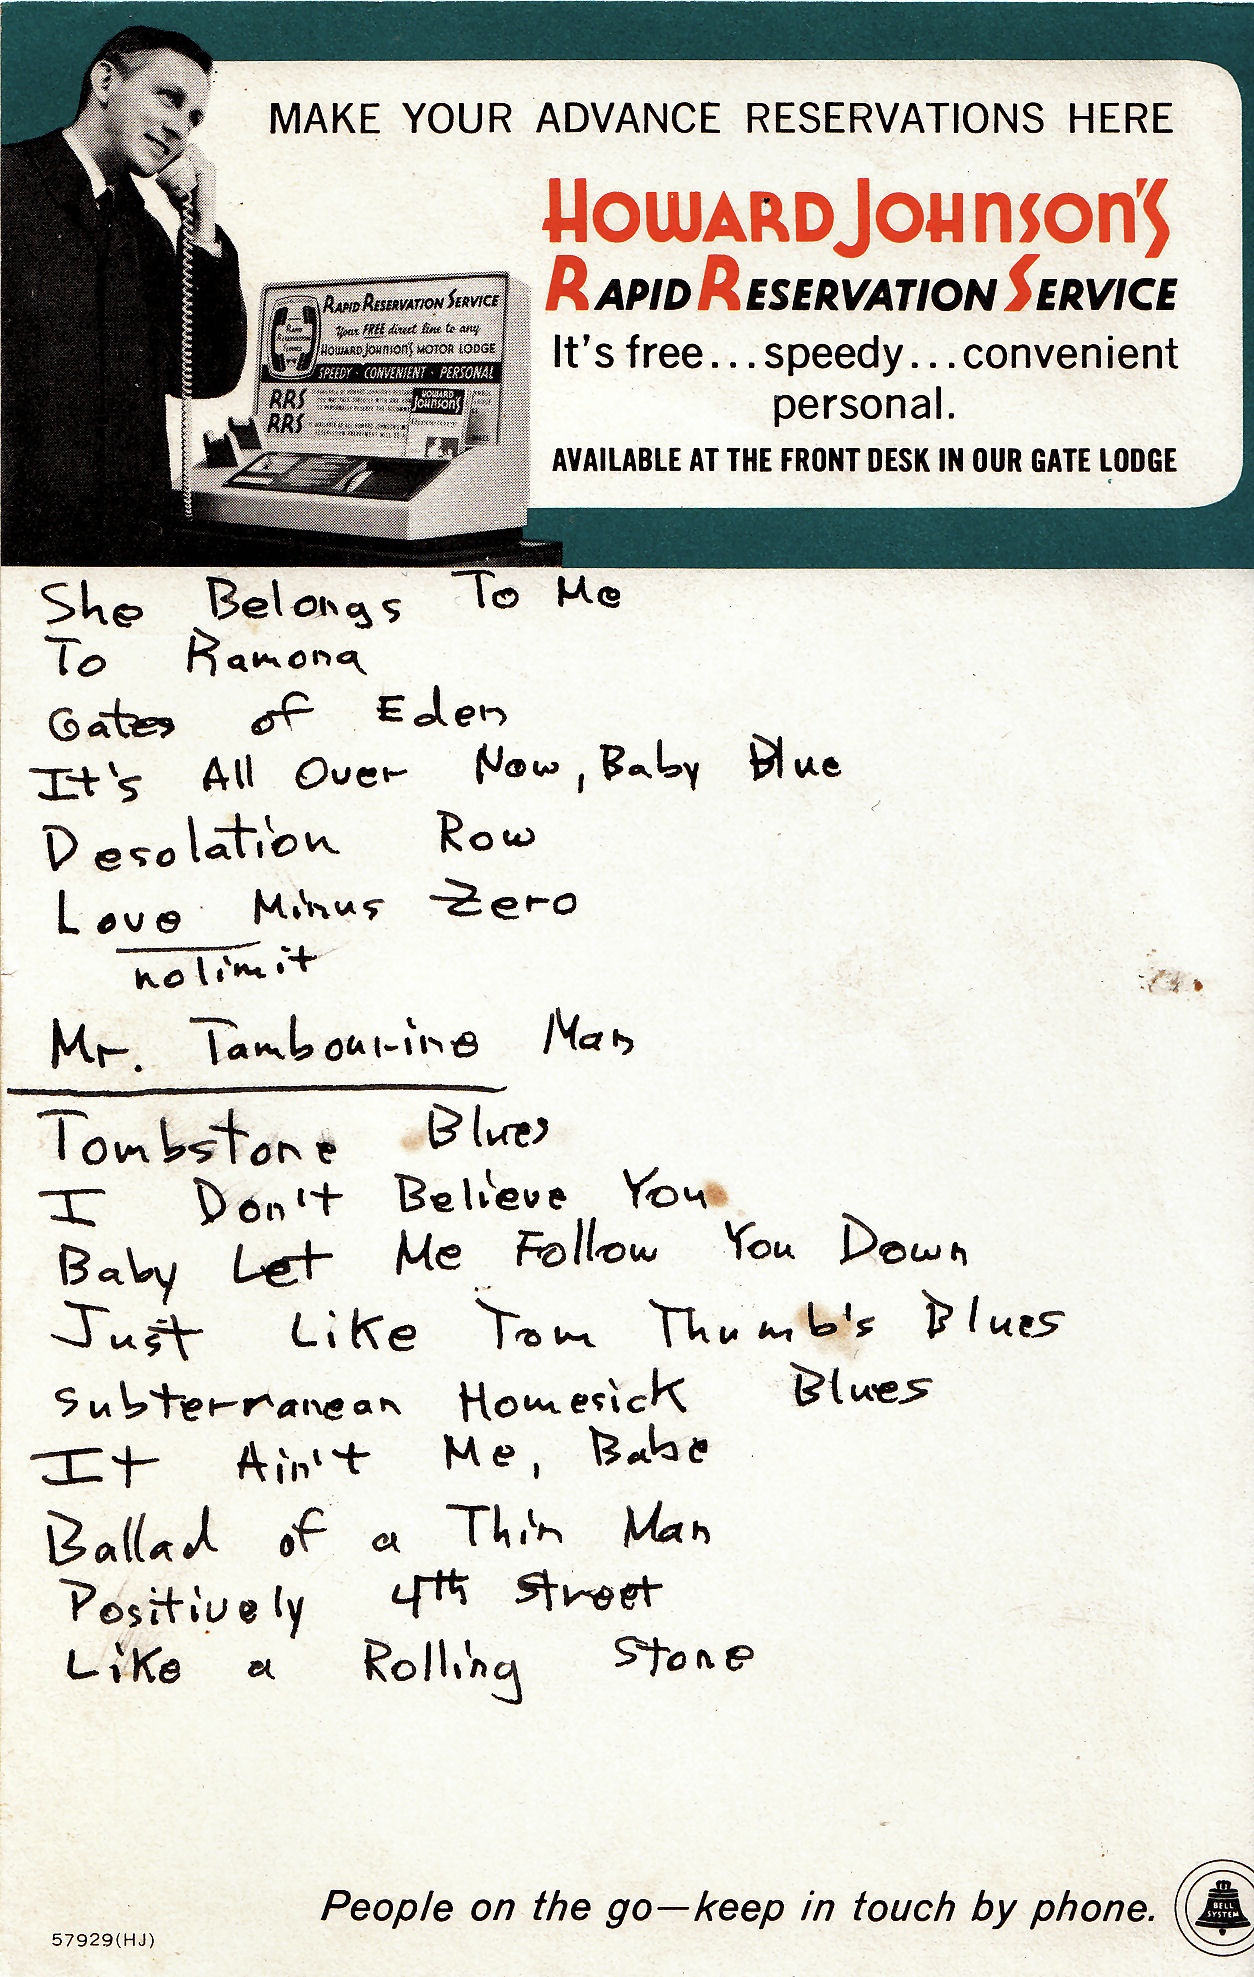 MAKE YOUR ADVANCE RESERVATIONS HERE
HOWARD JOHNSON'S
RAPID RESERVATION SERVICE
It's free...speedy...convenient
personal.
AVAILABLE AT THE FRONT DESK IN OUR GATE LODGE
RAPID RESERVATION SERVICE
Your FREE direct line to any
HOWARD JOHNSON'S MOTOR LODGE
SPEEDY · CONVENIENT · PERSONAL
RRS
RRS
HOWARD
JOHNSON'S
She Belongs To Me
To Ramona
Gates of Eden
It's All Over Now, Baby Blue
Desolation Row
Love Minus Zero
no limit
Mr. Tambourine Man
Tombstone Blues
I Don't Believe You
Baby Let Me Follow You Down
Just Like Tom Thumb's Blues
Subterranean Homesick Blues
It Ain't Me, Babe
Ballad of a Thin Man
Positively 4th Street
Like a Rolling Stone
People on the go—keep in touch by phone.
BELL
SYSTEM
57929(HJ)